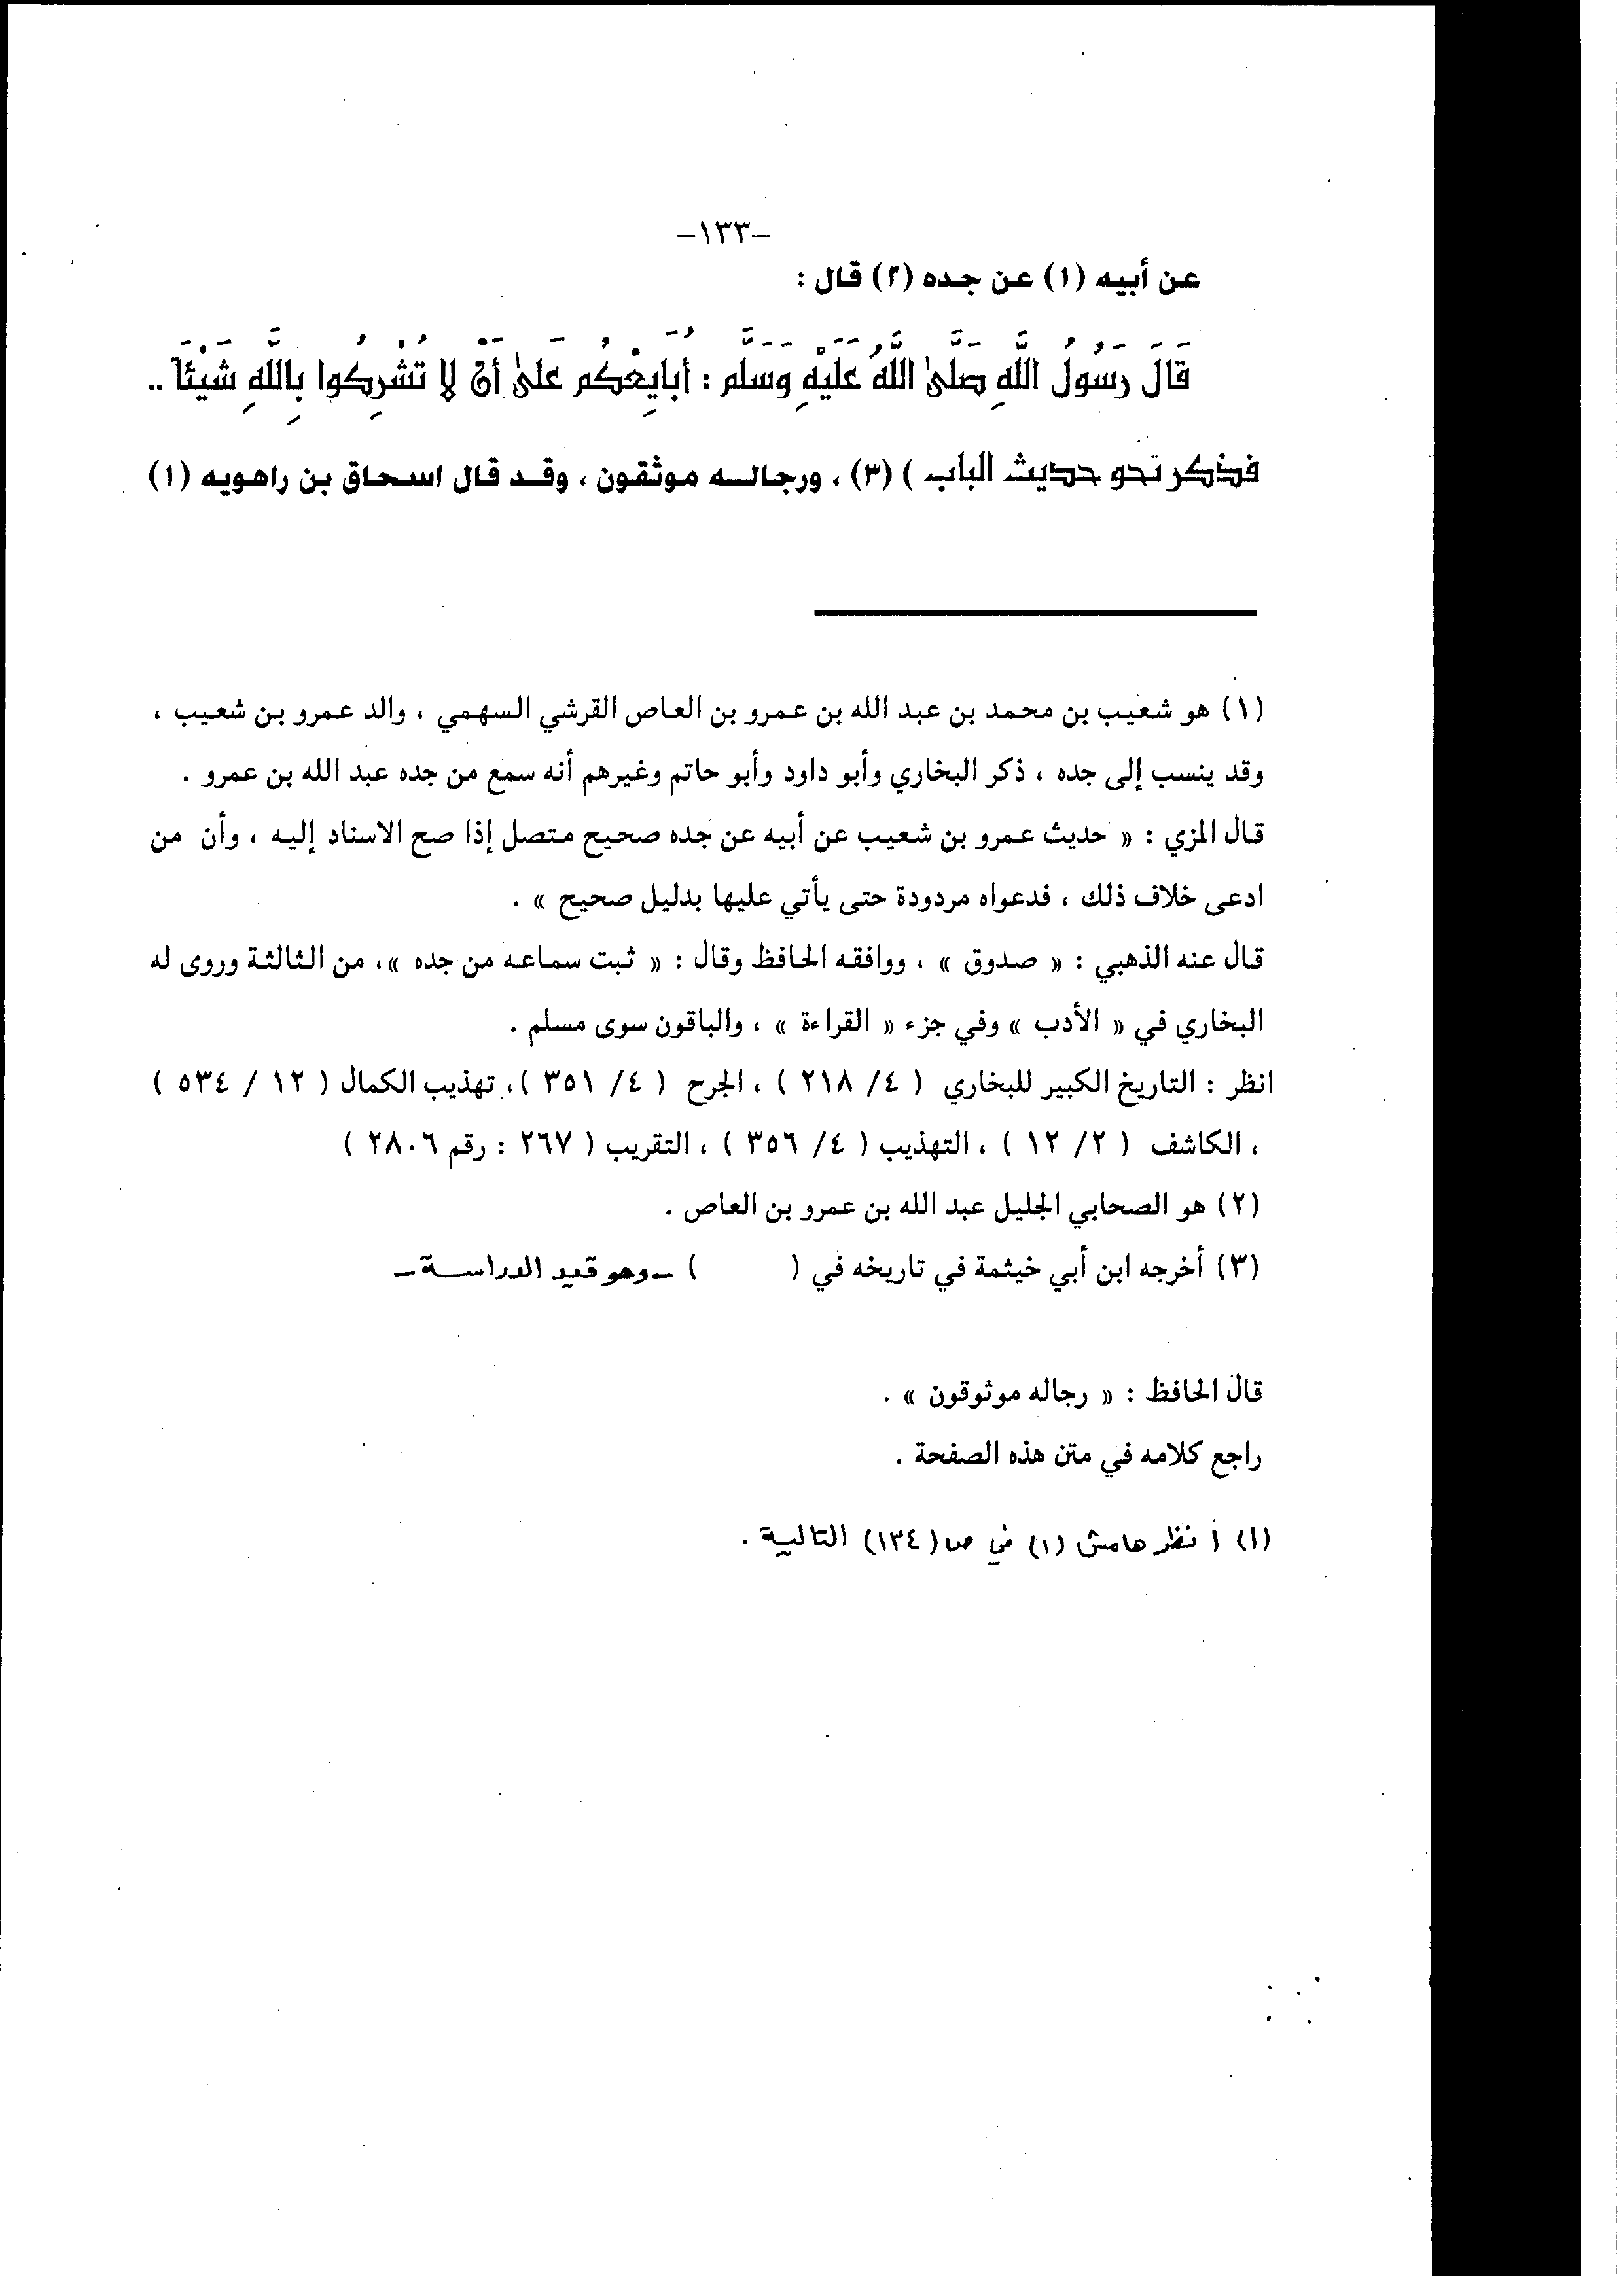 -١٣٣-
عن أبيه (١) عن جده (٢) قال :
قَالَ رَسُولُ اللَّهِ صَلَّىٰ اللَّهُ عَلَيْهِ وَسَلَّم : أُبَايِعْكُم عَلَىٰ أَنْ لا تُشْرِكُوا بِاللَّهِ شَيْئَاً ..
فذكر نحو حديث الباب ) (٣) ، ورجالـه موثقون ، وقـد قال اسحاق بن راهويه (١)
(١) هو شعيب بن محمد بن عبد الله بن عمرو بن العاص القرشي السهمي ، والد عمرو بن شعيب ،
وقد ينسب إلى جده ، ذكر البخاري وأبو داود وأبو حاتم وغيرهم أنه سمع من جده عبد الله بن عمرو .
قال المزي : « حديث عمرو بن شعيب عن أبيه عن جده صحيح متصل إذا صح الاسناد إليه ، وأن من
ادعى خلاف ذلك ، فدعواه مردودة حتى يأتي عليها بدليل صحيح » .
قال عنه الذهبي : « صدوق » ، ووافقه الحافظ وقال : « ثبت سماعه من جده »، من الثالثة وروى له
البخاري في « الأدب » وفي جزء « القراءة » ، والباقون سوى مسلم .
انظر : التاريخ الكبير للبخاري ( ٤/ ٢١٨ ) ، الجرح ( ٤/ ٣٥١ )، تهذيب الكمال ( ١٢ / ٥٣٤ )
، الكاشف ( ٢/ ١٢ ) ، التهذيب ( ٤/ ٣٥٦ ) ، التقريب ( ٢٦٧ : رقم ٢٨٠٦ )
(٢) هو الصحابي الجليل عبد الله بن عمرو بن العاص .
(٣) أخرجه ابن أبي خيثمة في تاريخه في ( ) ـ وهو قيد الدراسـة ـ
قال الحافظ : « رجاله موثوقون » .
راجع كلامه في متن هذه الصفحة .
(١) انظر هامش (١) في ص (١٣٤) التالية .